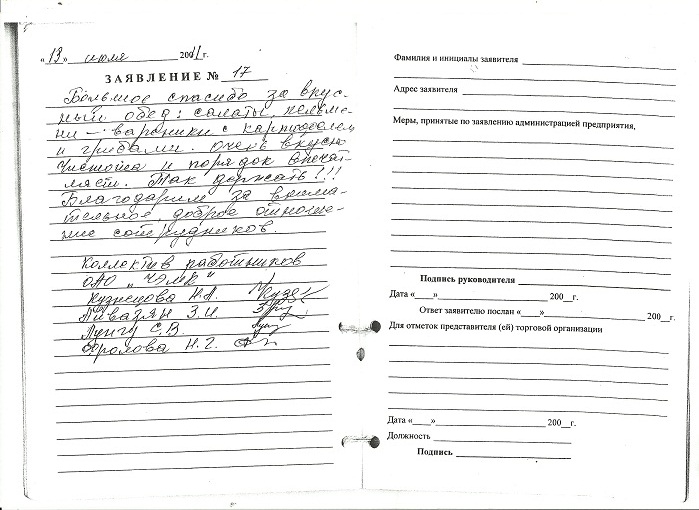 «13» июля 2001г.
ЗАЯВЛЕНИЕ № 17
Большое спасибо за вкус-
ный обед: салаты, пельме-
ни – вареники с картофелем
и грибами. очень вкусно
Чистота и порядок впечат-
ляет. Так держать!!!
Благодарим за внима-
тельное, доброе отноше-
ние сотрудников.
Коллектив работников
ОАО "ЧЭМК"
Кузнецова Н.А.
Айвазян З.И.
Лунгу С.В.
Фролова Н.Г.
Фамилия и инициалы заявителя
Адрес заявителя
Меры, принятые по заявлению администрацией предприятия,
Подпись руководителя
Дата «____» 200__г.
Ответ заявителю послан «____» 200__г.
Для отметок представителя (ей) торговой организации
Дата «____» 200__г.
Должность
Подпись